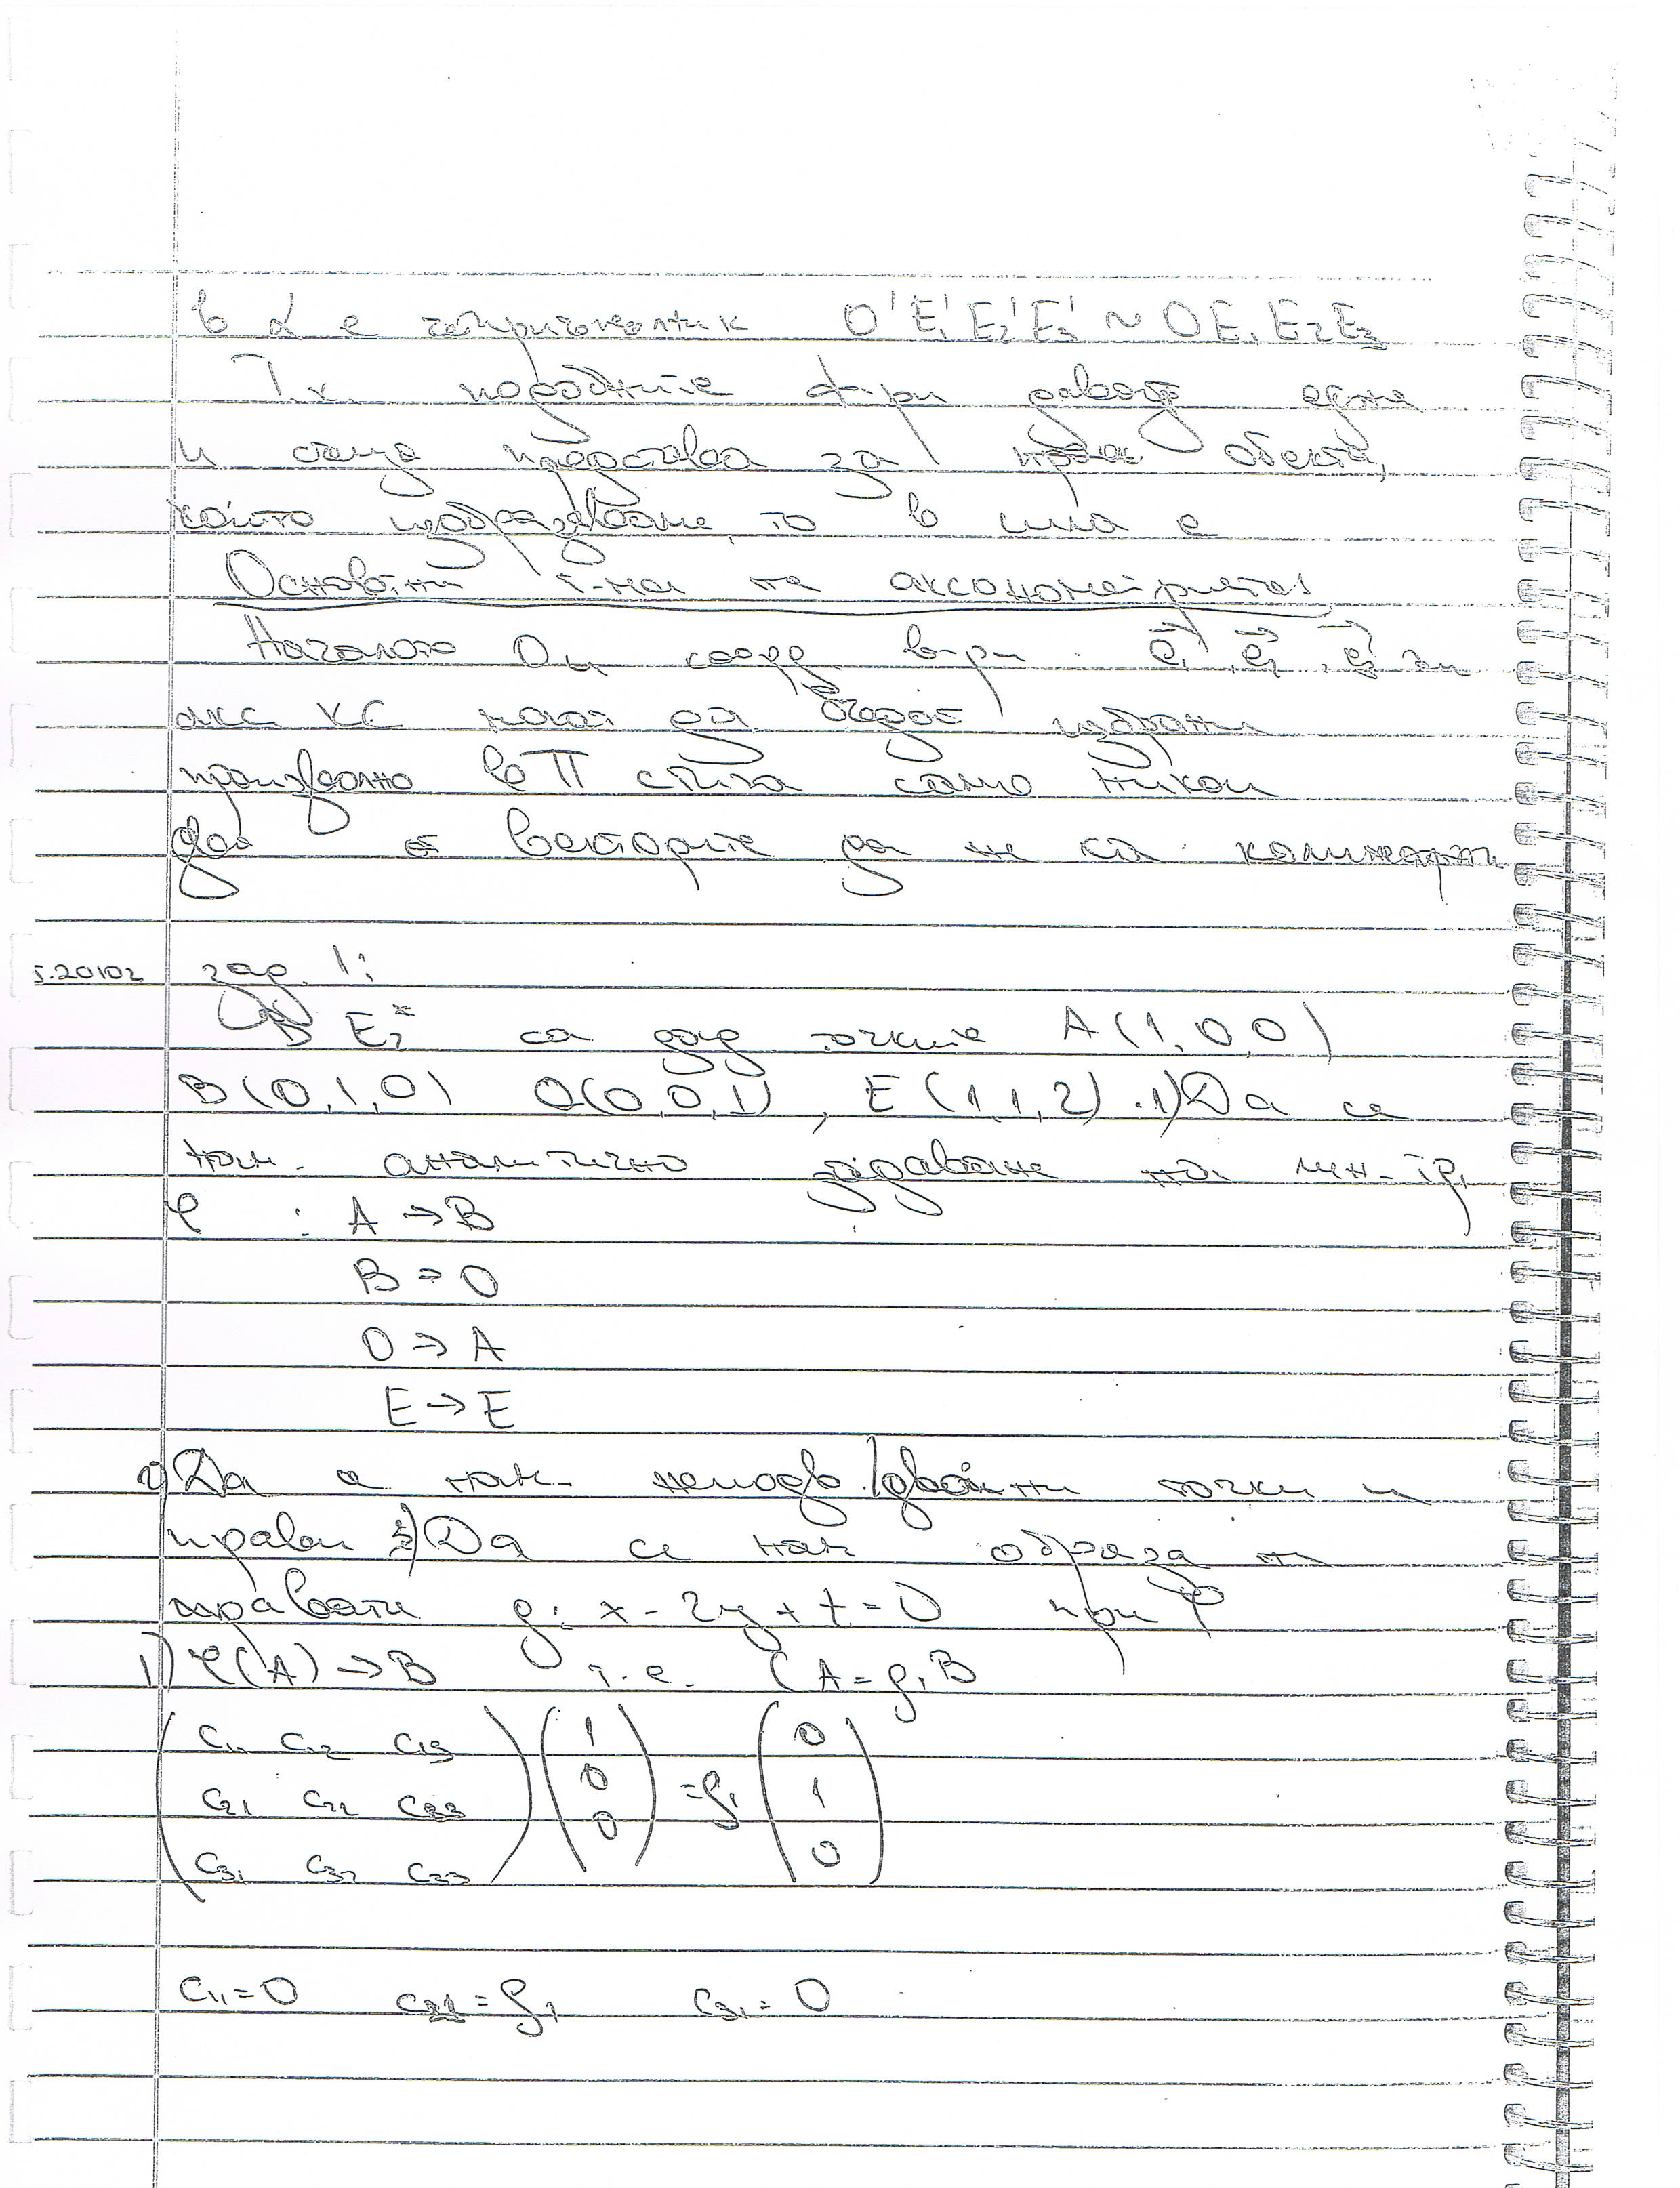 в α е четириъгълник O'E₁'E₂'E₃' ~ OE₁E₂E₃
Т.к. подобните ф-ри дават една
и съща представа за обекта,
които изобразяваме, то в сила е
Основни т-ма на аксонометрията
Началото O и коорд в-ри e₁, e₂, e₃ на
акс КС могат да бъдат избрани
произволно в П стига само никои
два от векторите да не са колинеарни
5.2010г зад. 1:
В E₂* са дад точките A(1,0,0)
B(0,1,0) O(0,0,1), E(1,1,2). 1)Да се
нам. аналитично задаване на лин-тр.
φ : A → B
B → O
O → A
E → E
2)Да се нам. неподв./двойни точки и
прави 3)Да се нам образа на
правата g: x - 2y + t = 0 при φ
1) φ(A) → B т.е. CA = ρ₁B
(c₁₁ c₁₂ c₁₃) (1) (0)
(c₂₁ c₂₂ c₃₃) (0) = ρ₁ (1)
(c₃₁ c₃₂ c₃₃) (0) (0)
c₁₁ = 0 c₂₁ = ρ₁ c₃₁ = 0